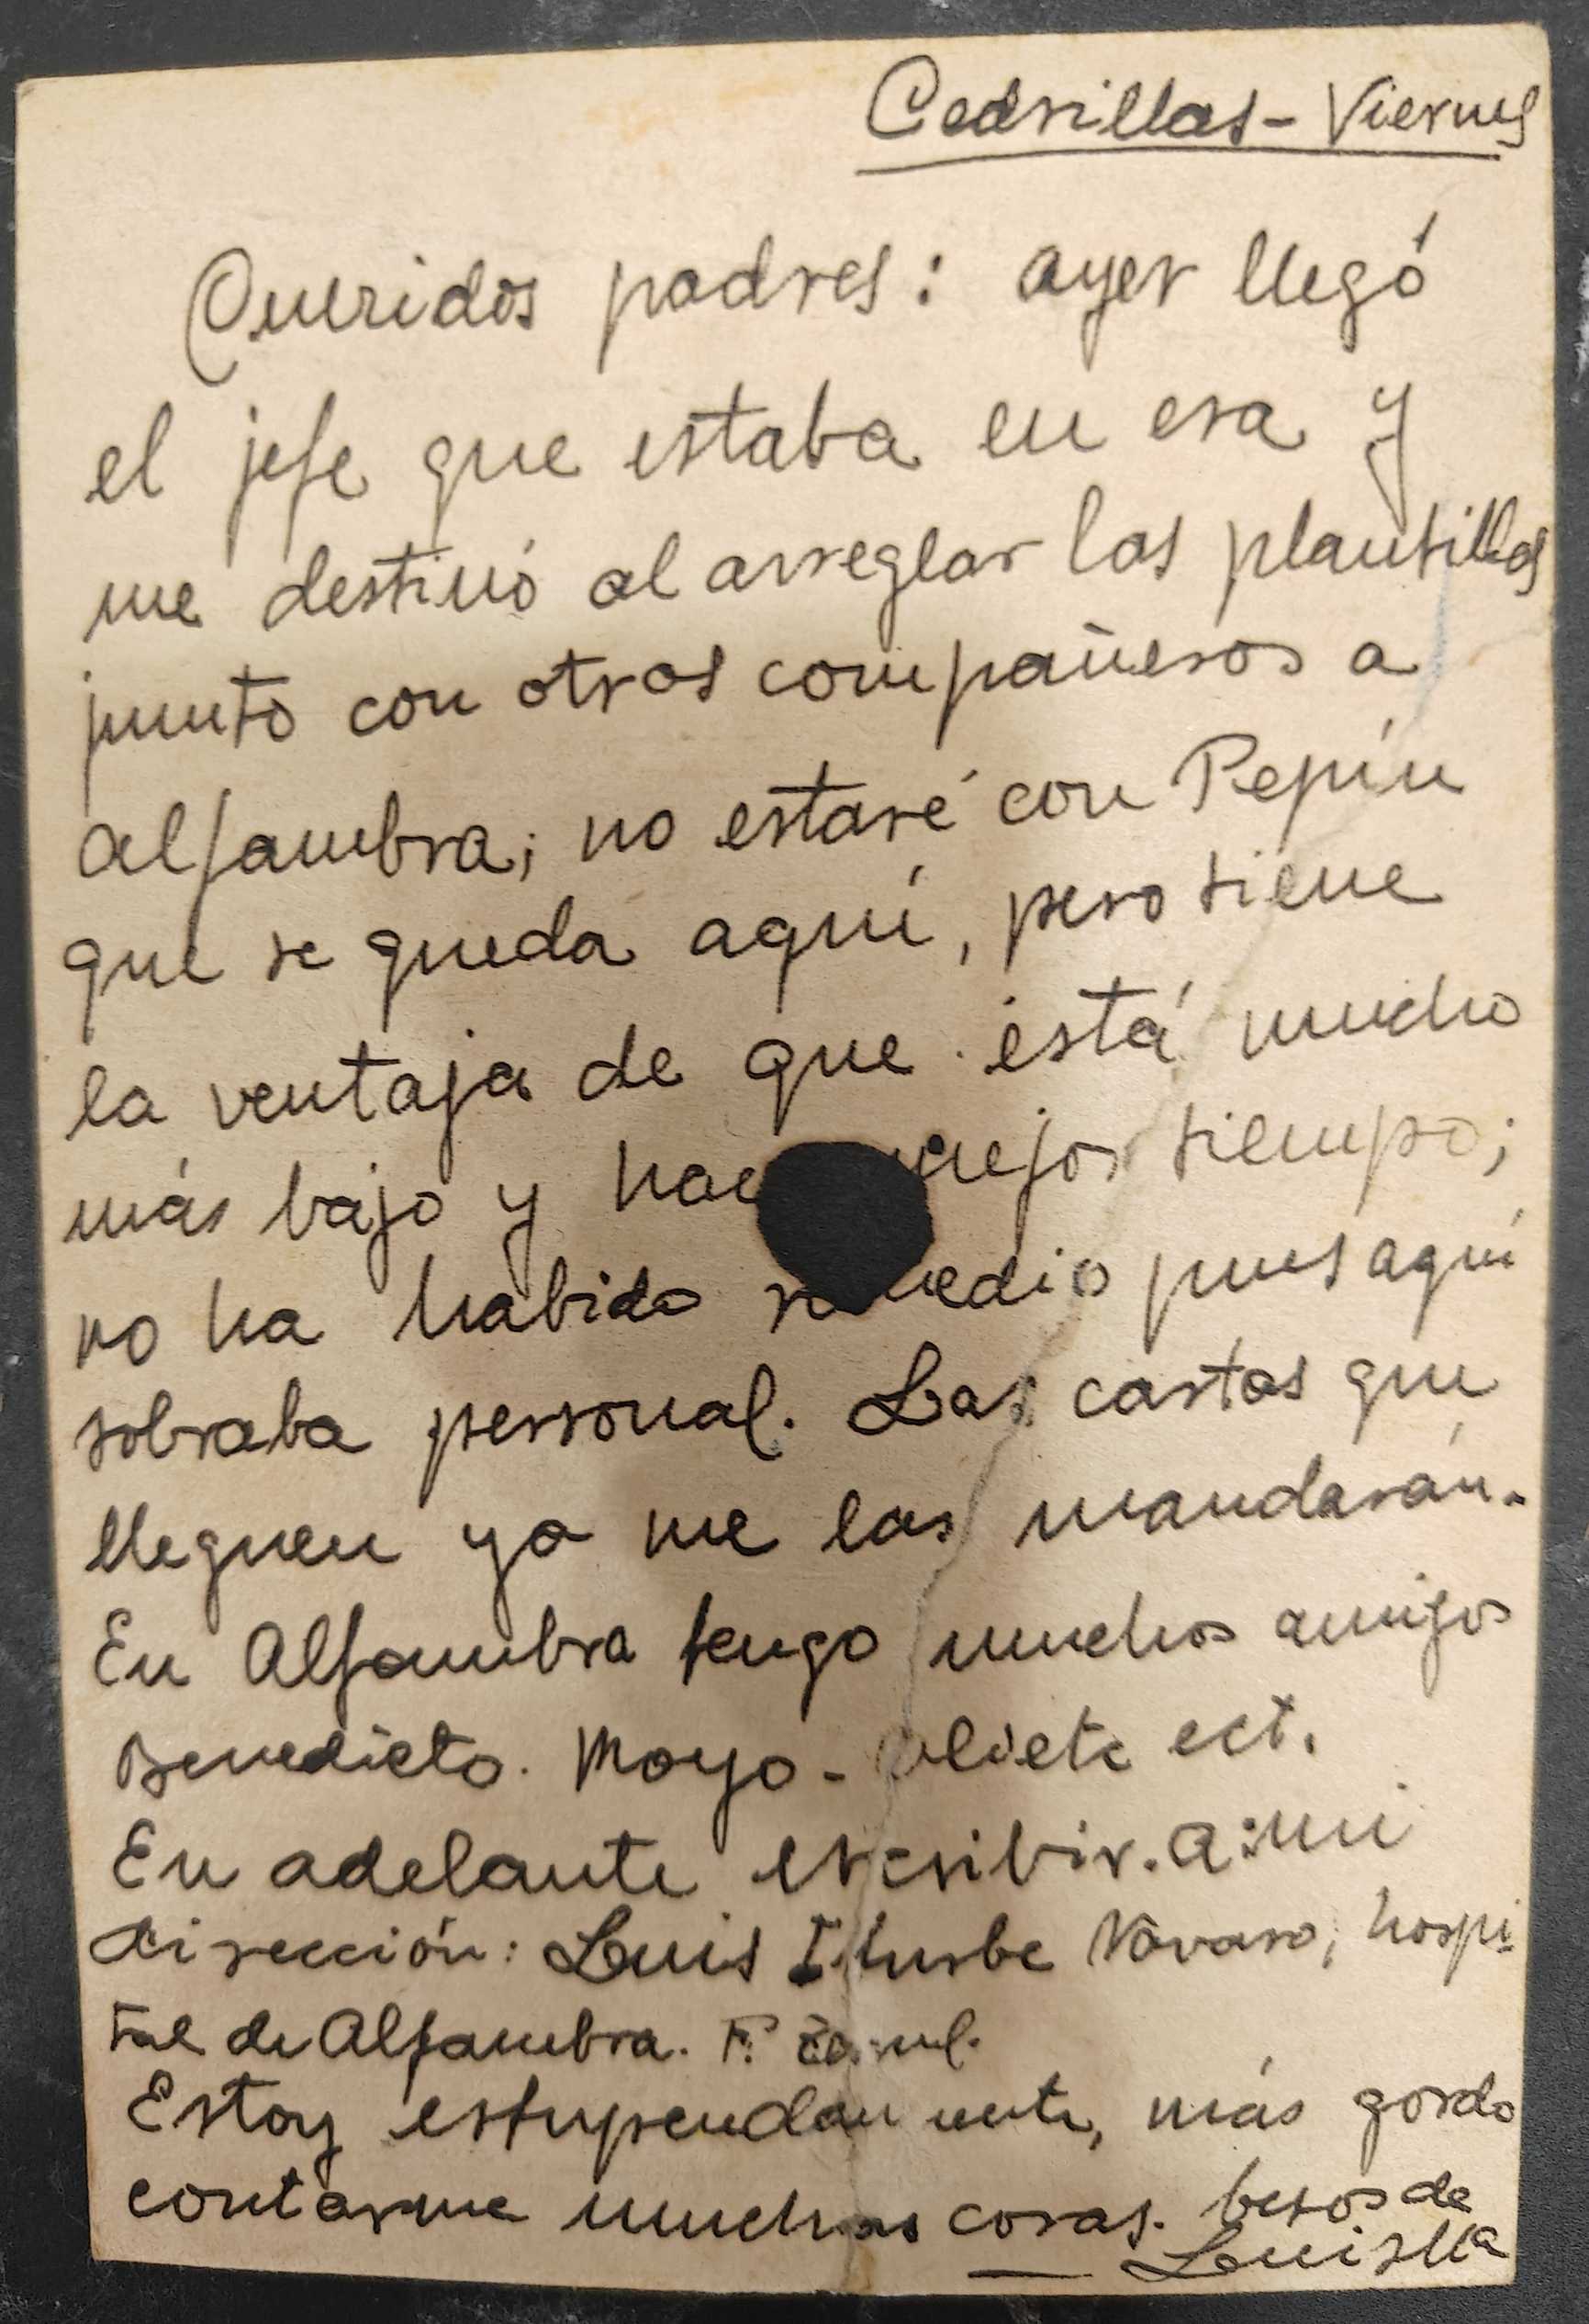 Cedrillas - Viernes
Queridos padres: ayer llegó
el jefe que estaba en esa y
me destinó al arreglar las plantillas
junto con otros compañeros a
Alfambra; no estaré con Pepín
que se queda aquí, pero tiene
la ventaja de que está mucho
más bajo y hac mejor tiempo;
no ha habido r medio pues aquí
sobraba personal. Las cartas que
lleguen ya me las mandarán.
En Alfambra tengo muchos amigos
Benedicto. Moyo - Oliete ect.
En adelante escribir. a mi
dirección: Luis Iturbe Navaro, hospi
tal de Alfambra. F.
Estoy estupendamente, más gordo
contarme muchas cosas. besos de
Luis Mª